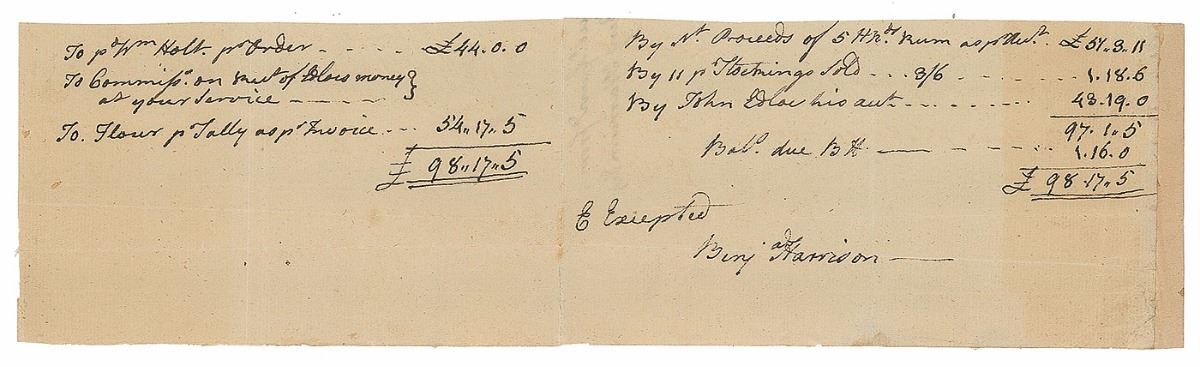 To pd Wm Holt pr Order - - - - £44.0.0
To Commisso. on Rect of Edloes money }
at your Service - - - - -
To Flour pr Tally as pr Invoice - - - 54..17..5
£ 98..17..5
By Nt. Proceeds of 5 Hhds Rum as pr Acct. £51.3.11
By 11 pr Stockings Sold - - - 3/6 - - - - - - - 1.18.6
By John Edloe his acct. - - - - - - - 43.19.0
97.1..5
Bale. due BH - - - - - - - 1.16.0
£ 98.17..5
E Excepted
Benja Harrison